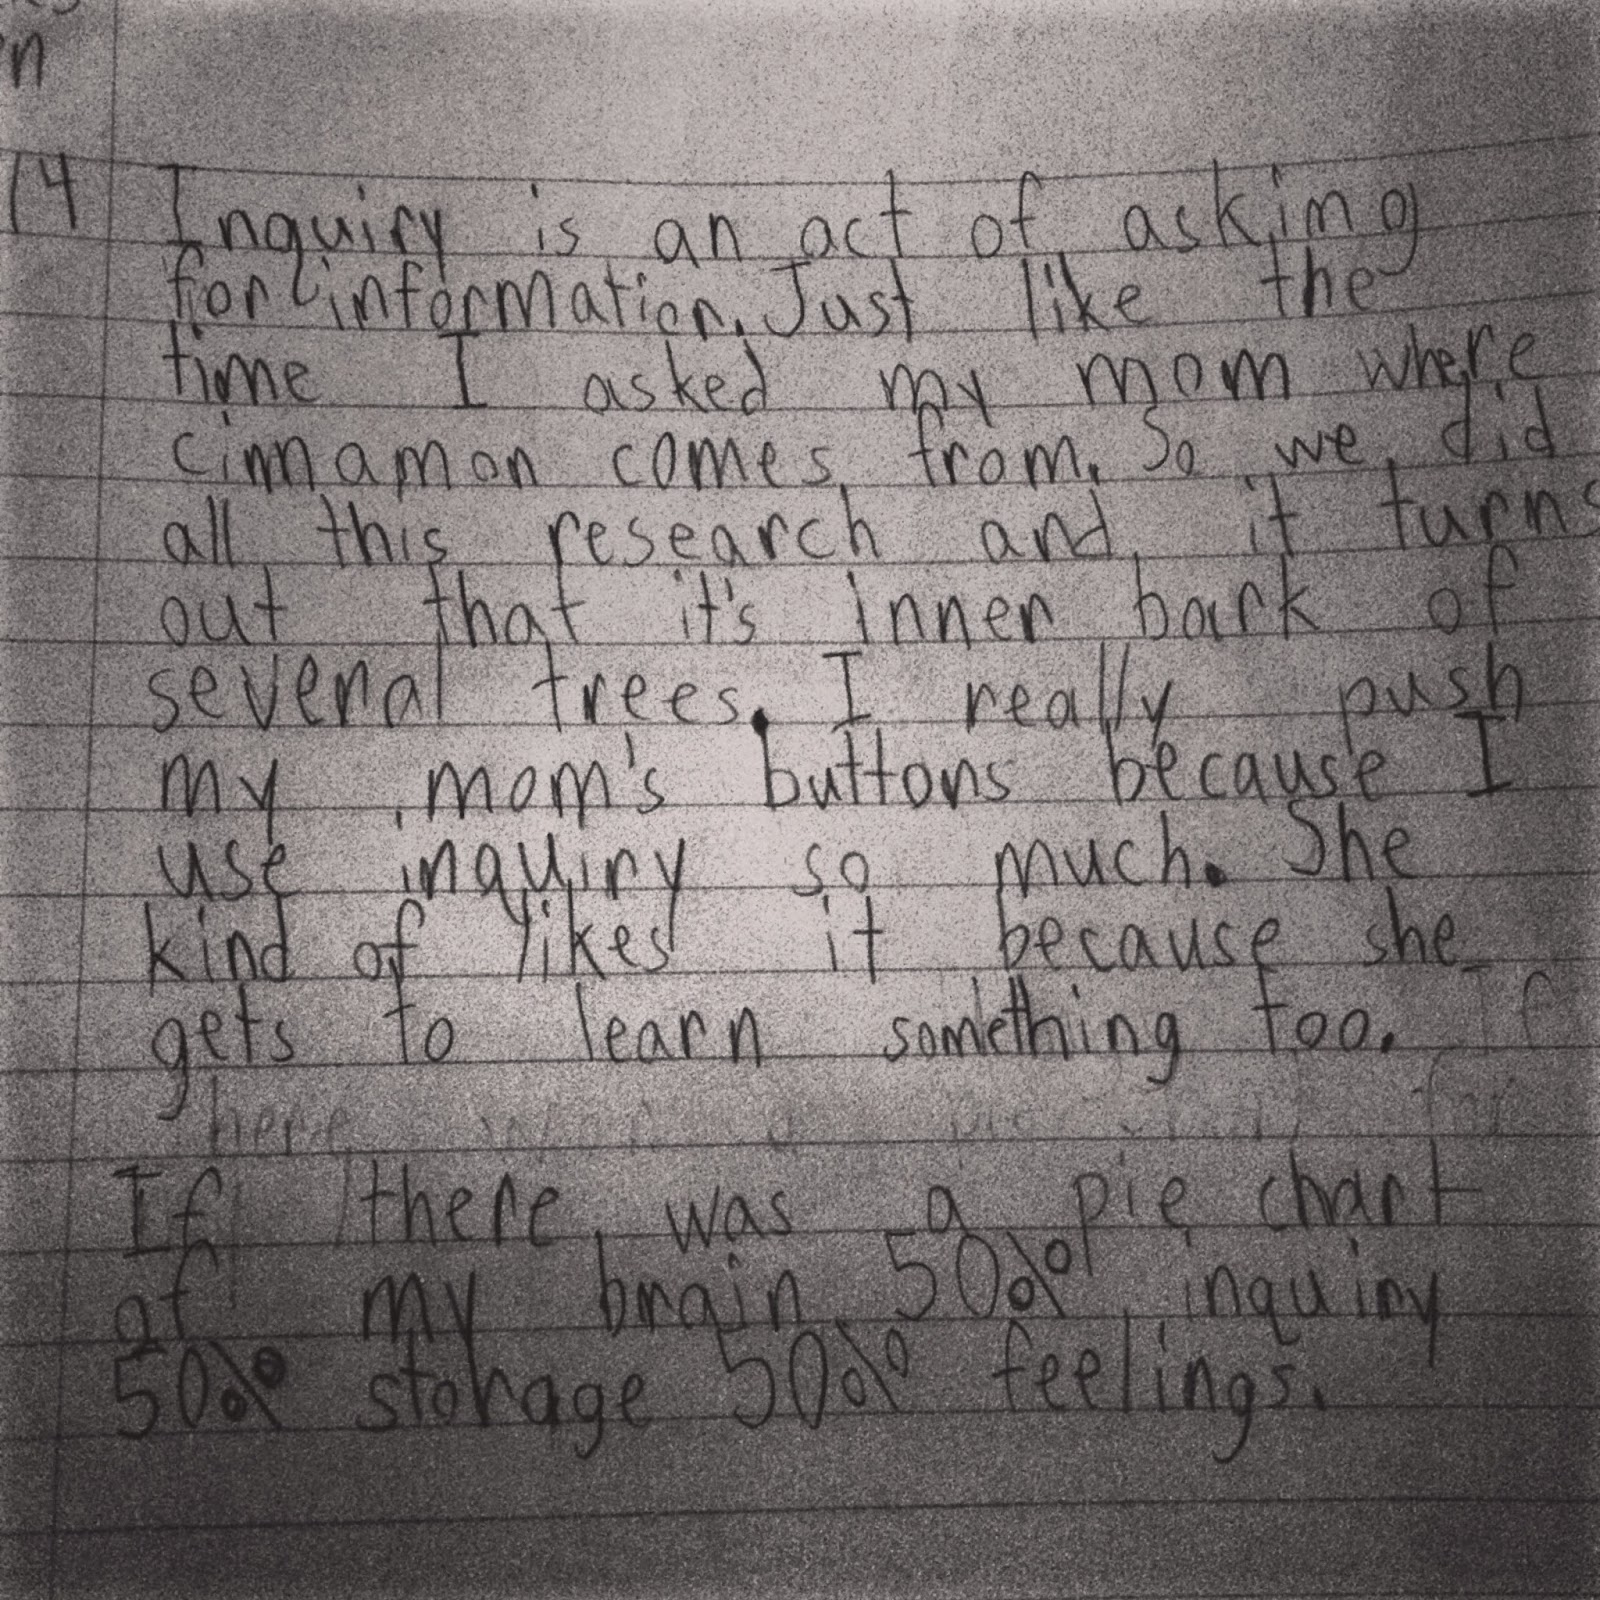 n
14 Inquiry is an act of asking
for information. Just like the
time I asked my mom where
cinnamon comes from. So we did
all this research and it turns
out that it's inner bark of
several trees. I really push
my mom's buttons because I
use inquiry so much. She
kind of likes it because she
gets to learn something too. If
there was a
If there was a pie chart
of my brain 50% inquiry
50% storage 50% feelings.